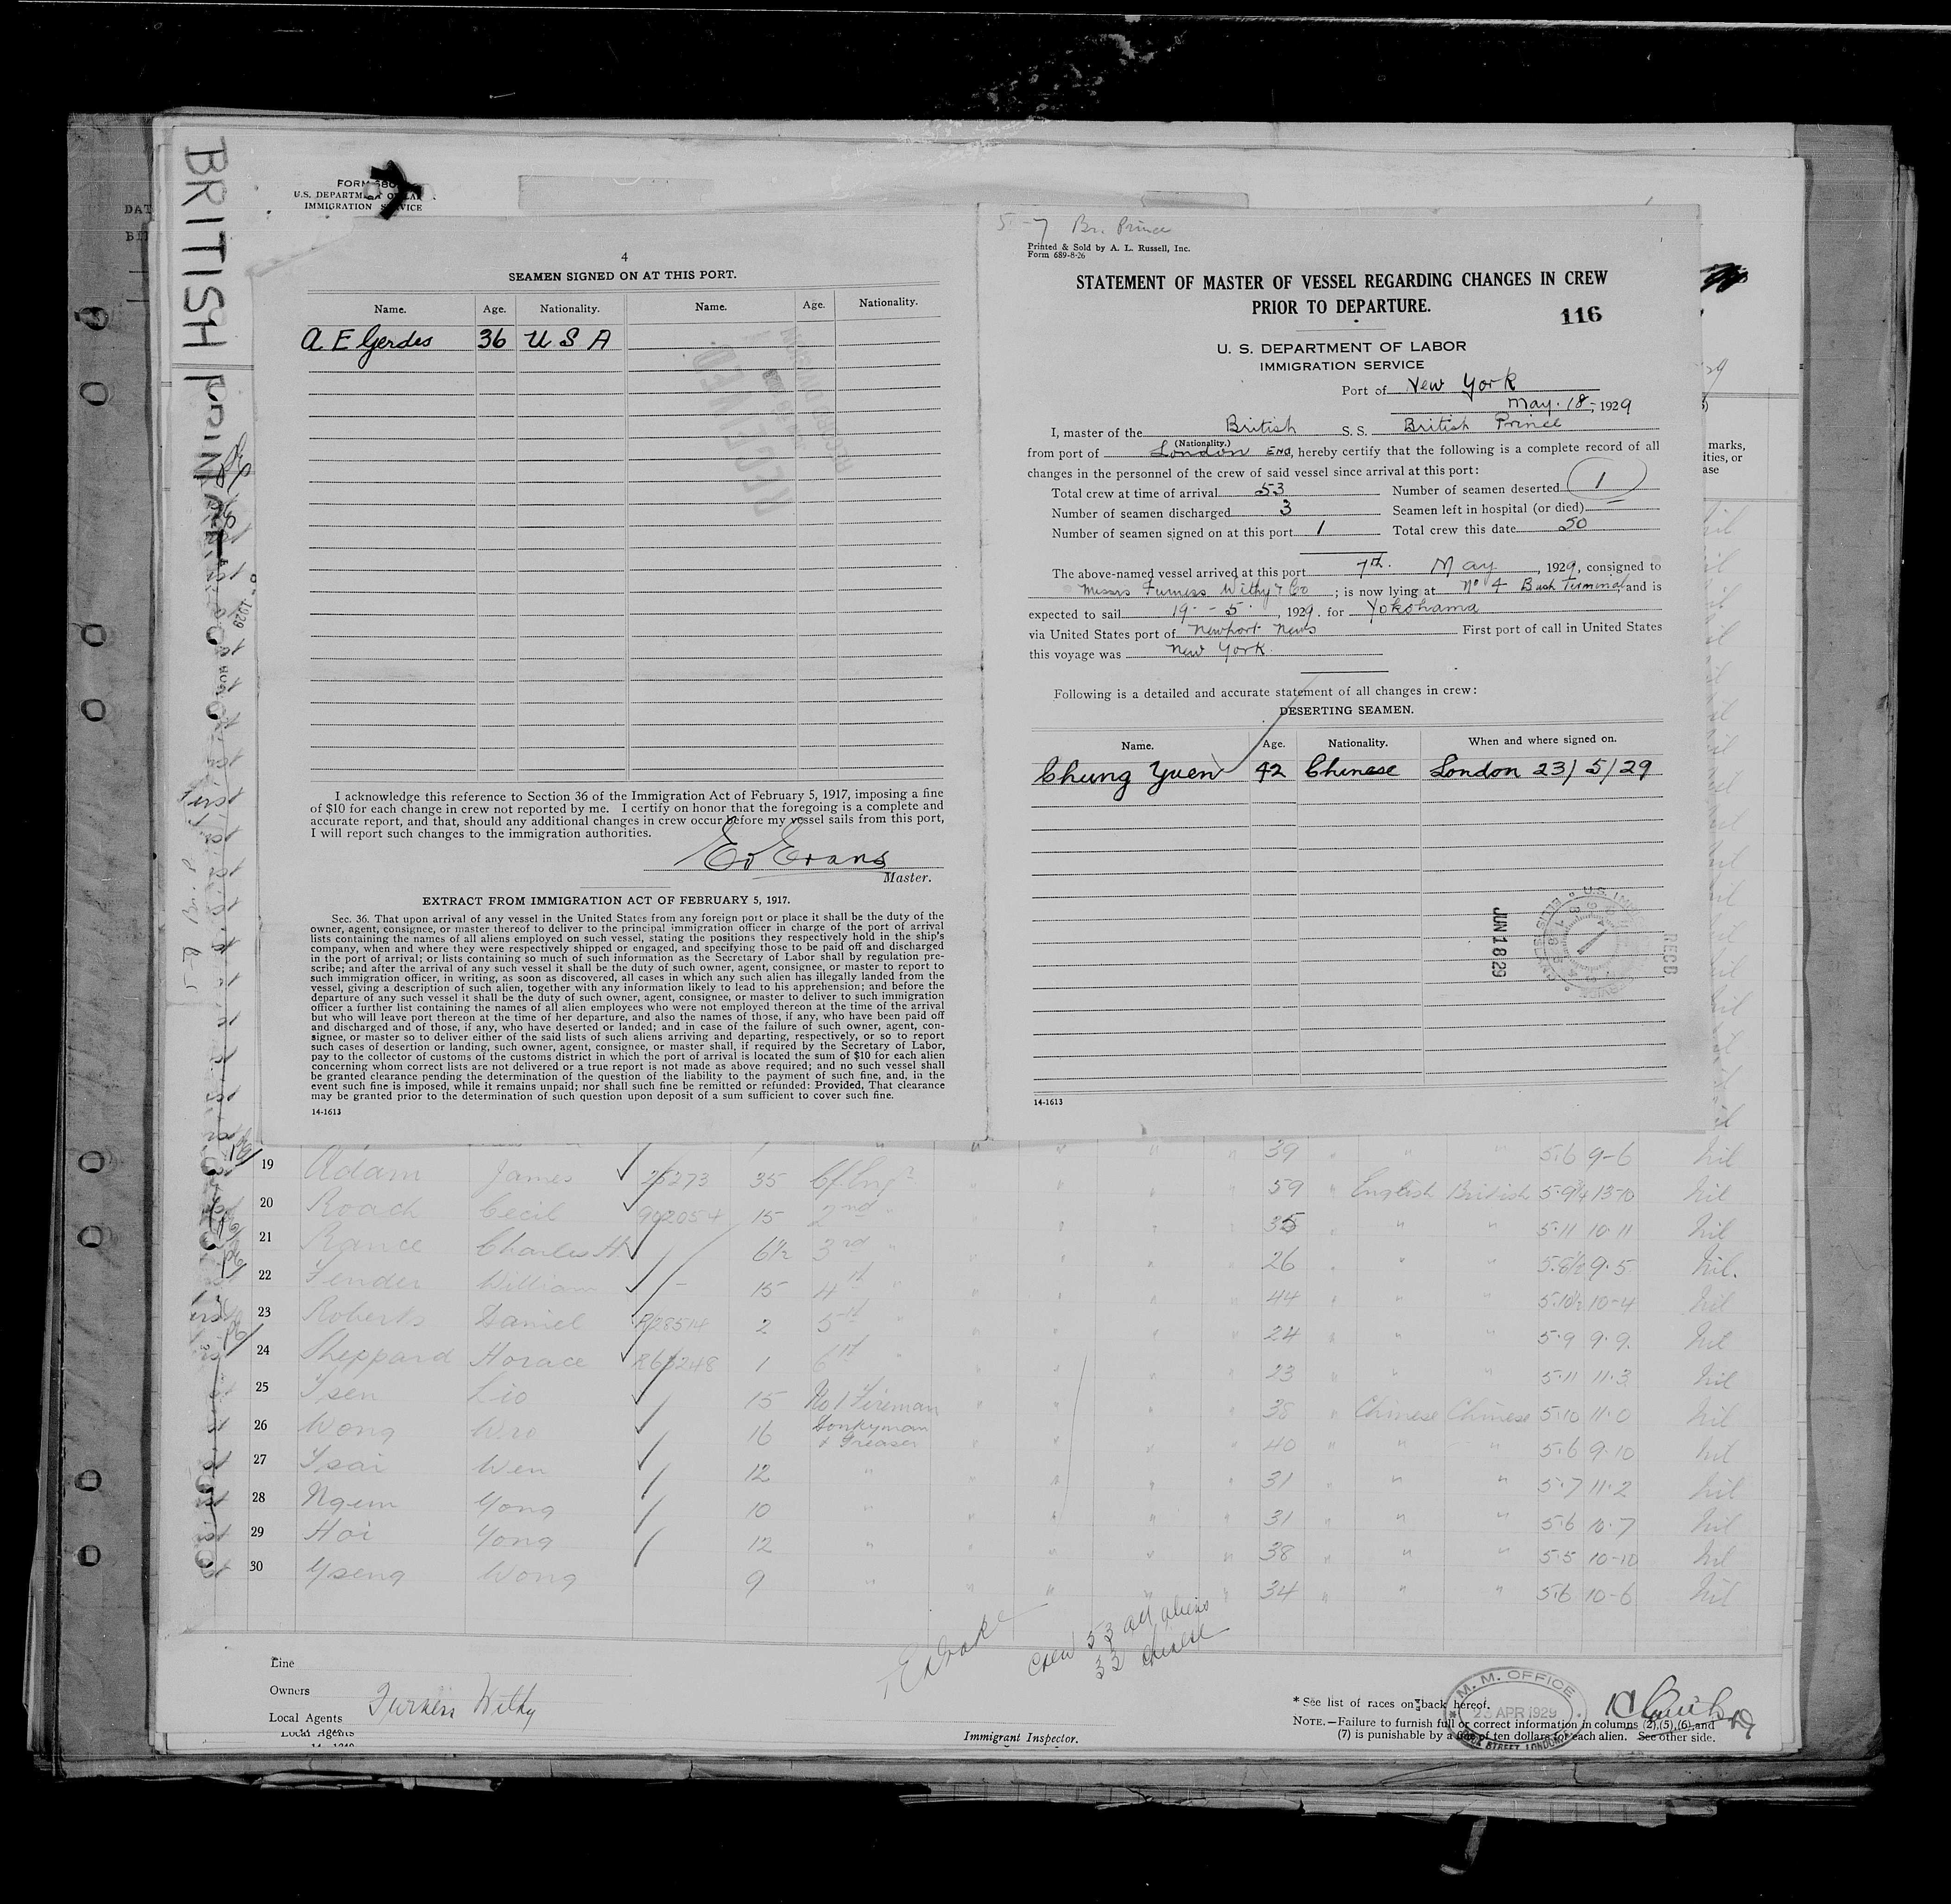 BRITISH PRINCE
FORM 680
U.S. DEPARTMENT OF LABOR
IMMIGRATION SERVICE
4
SEAMEN SIGNED ON AT THIS PORT.
Name. Age. Nationality. Name. Age. Nationality.
A E Gerdes 36 U S A
RECEIVED
I acknowledge this reference to Section 36 of the Immigration Act of February 5, 1917, imposing a fine
of $10 for each change in crew not reported by me. I certify on honor that the foregoing is a complete and
accurate report, and that, should any additional changes in crew occur before my vessel sails from this port,
I will report such changes to the immigration authorities.
Evans
Master.
EXTRACT FROM IMMIGRATION ACT OF FEBRUARY 5, 1917.
Sec. 36. That upon arrival of any vessel in the United States from any foreign port or place it shall be the duty of the
owner, agent, consignee, or master thereof to deliver to the principal immigration officer in charge of the port of arrival
lists containing the names of all aliens employed on such vessel, stating the positions they respectively hold in the ship's
company, when and where they were respectively shipped or engaged, and specifying those to be paid off and discharged
in the port of arrival; or lists containing so much of such information as the Secretary of Labor shall by regulation pre-
scribe; and after the arrival of any such vessel it shall be the duty of such owner, agent, consignee, or master to report to
such immigration officer, in writing, as soon as discovered, all cases in which any such alien has illegally landed from the
vessel, giving a description of such alien, together with any information likely to lead to his apprehension; and before the
departure of any such vessel it shall be the duty of such owner, agent, consignee, or master to deliver to such immigration
officer a further list containing the names of all alien employees who were not employed thereon at the time of the arrival
but who will leave port thereon at the time of her departure, and also the names of those, if any, who have been paid off
and discharged and of those, if any, who have deserted or landed; and in case of the failure of such owner, agent, con-
signee, or master so to deliver either of the said lists of such aliens arriving and departing, respectively, or so to report
such cases of desertion or landing, such owner, agent, consignee, or master shall, if required by the Secretary of Labor,
pay to the collector of customs of the customs district in which the port of arrival is located the sum of $10 for each alien
concerning whom correct lists are not delivered or a true report is not made as above required; and no such vessel shall
be granted clearance pending the determination of the question of the liability to the payment of such fine, and, in the
event such fine is imposed, while it remains unpaid; nor shall such fine be remitted or refunded: Provided, That clearance
may be granted prior to the determination of such question upon deposit of a sum sufficient to cover such fine.
14-1613
5-7 Br. Prince
Printed & Sold by A. L. Russell, Inc.
Form 689-8-26
STATEMENT OF MASTER OF VESSEL REGARDING CHANGES IN CREW
PRIOR TO DEPARTURE.
116
U. S. DEPARTMENT OF LABOR
IMMIGRATION SERVICE
Port of New York
May. 18, 1929
I, master of the British S. S. British Prince
(Nationality.)
from port of London Eng, hereby certify that the following is a complete record of all
changes in the personnel of the crew of said vessel since arrival at this port:
Total crew at time of arrival 53 Number of seamen deserted 1
Number of seamen discharged 3 Seamen left in hospital (or died) —
Number of seamen signed on at this port 1 Total crew this date 50
The above-named vessel arrived at this port 7th. May, 1929, consigned to
Messrs Furness Withy & Co; is now lying at No 4 Bush Terminal, and is
expected to sail 19 - 5, 1929. for Yokohama
via United States port of Newport News First port of call in United States
this voyage was New York
Following is a detailed and accurate statement of all changes in crew:
DESERTING SEAMEN.
Name. Age. Nationality. When and where signed on.
Chung Yuen 42 Chinese London 23/5/29
JUN 18 29
RECD
14-1613
marks,
ities, or
ase
39 " " " 5.6 9-6 Nil
19 Adam James 25273 35 Cf. Eng 59 " English British 5.9¼ 13-10 Nil
20 Roach Cecil 902054 15 2nd " 35 " " 5.11 10.11 Nil
21 Rance Charles H. 6½ 3rd " 26 " " 5.8½ 9.5 Nil.
22 Fender William - 15 4th " 44 " " 5.10½ 10-4 Nil
23 Roberts Daniel R28514 2 5th " 24 " " 5.9 9.9. Nil
24 Sheppard Horace 1 6th " 23 " " 5.11 11.3 Nil
25 Tsen Lio 15 No 1 Fireman 38 " Chinese Chinese 5.10 11.0 Nil
26 Wong Wro 16 Donkeyman & Greaser 40 " " " 5.6 9.10 Nil
27 Tsai Wen 12 " 31 " " " 5.7 11.2 Nil
28 Ngem Yong 10 " 31 " " " 5.6 10.7 Nil
29 Hoi Yong 12 " 38 " " " 5.5 10-10 Nil
30 Yseng Wong 9 " 34 " " " 5.6 10-6 Nil
crew 53 all aliens
33 chinese
Line
Owners
Local Agents Furness Withy
Local Agents
Immigrant Inspector.
* See list of races on back hereof.
NOTE.—Failure to furnish full or correct information in columns (2), (5), (6), and
(7) is punishable by a fine of ten dollars for each alien. See other side.
M. M. OFFICE
23 APR 1929
STREET LONDON